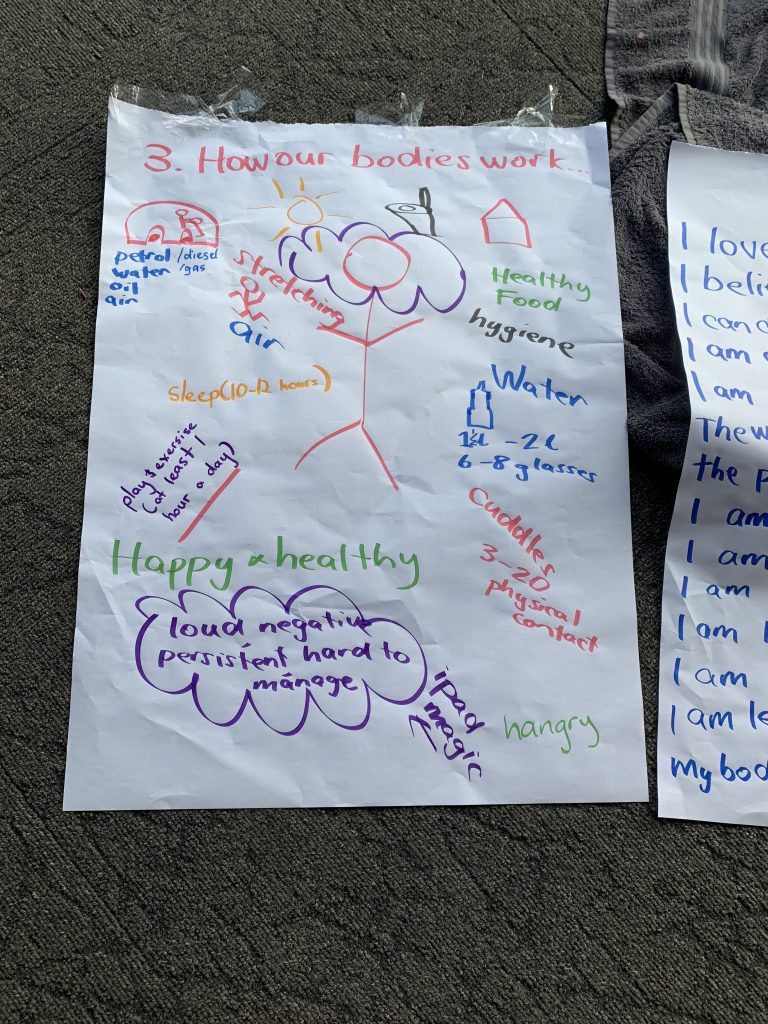 3. How our bodies work...
petrol /diesel
water /gas
oil
air
stretching
air
Healthy
Food
hygiene
Sleep (10-12 hours)
Water
1½L - 2L
6-8 glasses
play & exersise
(at least 1
hour a day)
Cuddles
3-20
physical
contact
Happy & healthy
loud negative
persistent hard to
manage
ipad
magic
hangry
I love
I am
I am
the
I am
I am
I am
I am
I am
I am
my